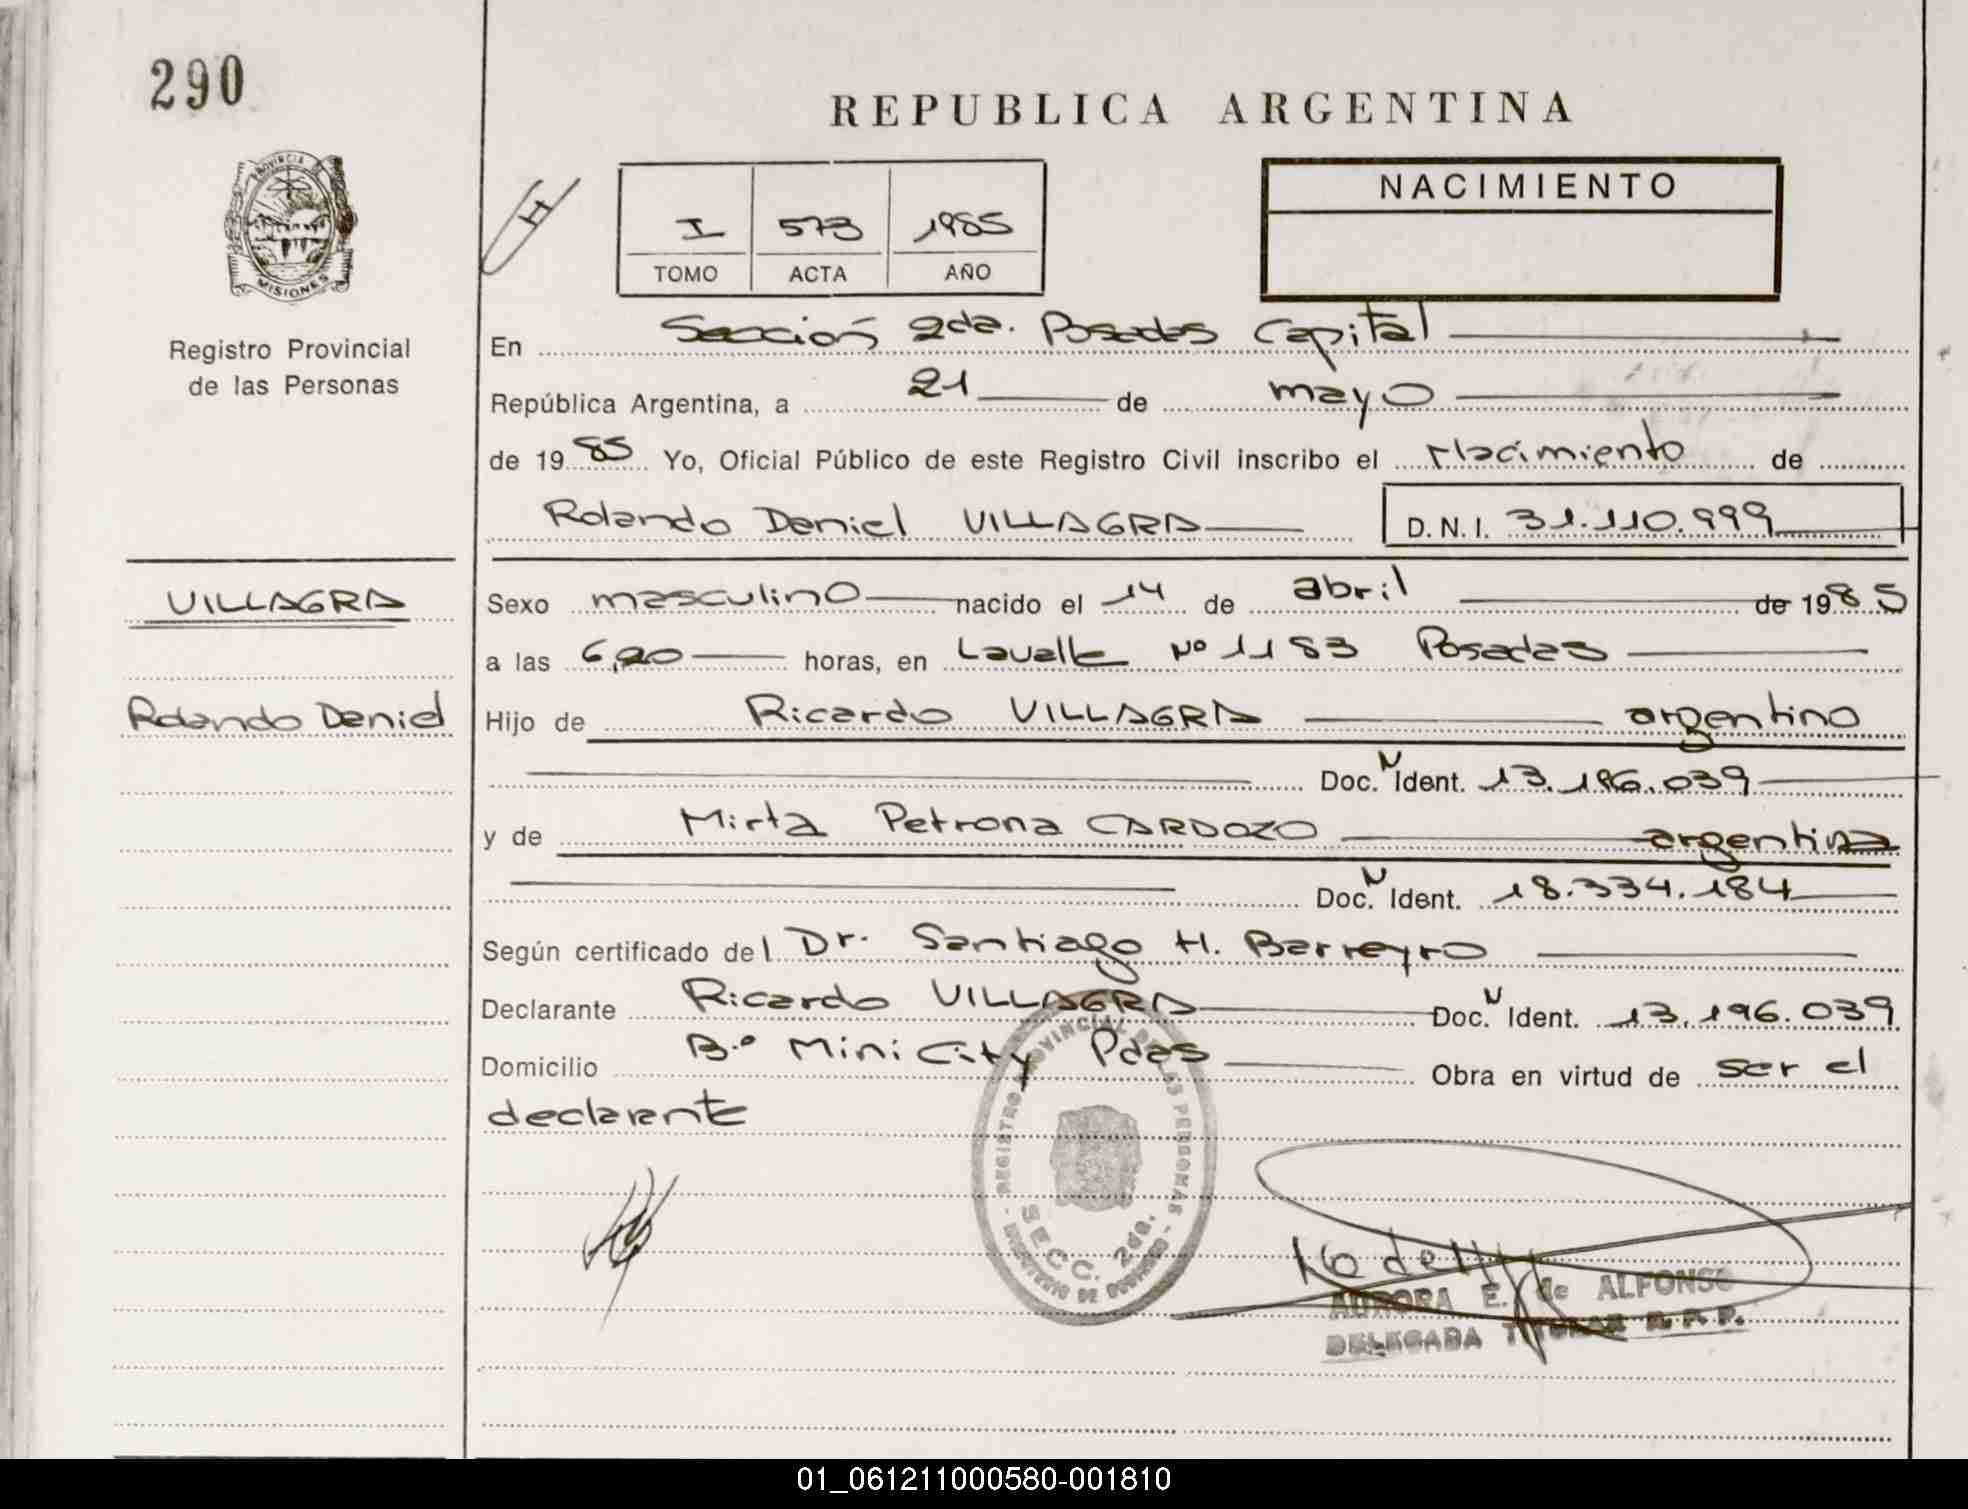 290
REPUBLICA ARGENTINA
PROVINCIA
MISIONES
Registro Provincial
de las Personas
H
I 573 1985
TOMO ACTA AÑO
NACIMIENTO
En Sección 2da. Posadas Capital
República Argentina, a 21 de mayo
de 1985 Yo, Oficial Público de este Registro Civil inscribo el Nacimiento de
Rolando Daniel VILLAGRA D.N.I. 31.110.999
VILLAGRA
Rolando Daniel
Sexo masculino nacido el 14 de abril de 1985
a las 6,20 horas, en Lavalle Nº 1183 Posadas
Hijo de Ricardo VILLAGRA argentino
Doc. N Ident. 13.196.039
y de Mirta Petrona CARDOZO argentina
Doc. N Ident. 18.334.184
Según certificado del Dr. Santiago H. Barreyro
Declarante Ricardo VILLAGRA Doc. N Ident. 13.196.039
Domicilio Bº Mini City Pdas Obra en virtud de ser el
declarante
REGISTRO PROVINCIAL DE LAS PERSONAS
SECC. 2da.
MINISTERIO DE GOBIERNO
AURORA E. de ALFONSO
DELEGADA TITULAR R. P. P.
01_061211000580-001810